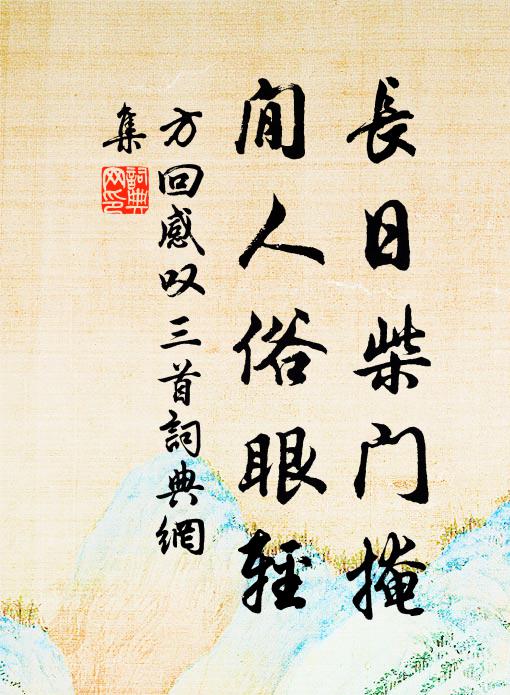 長日柴门掩
閒人俗眼輕
方回感叹三首詞典網
集
詞典
网印